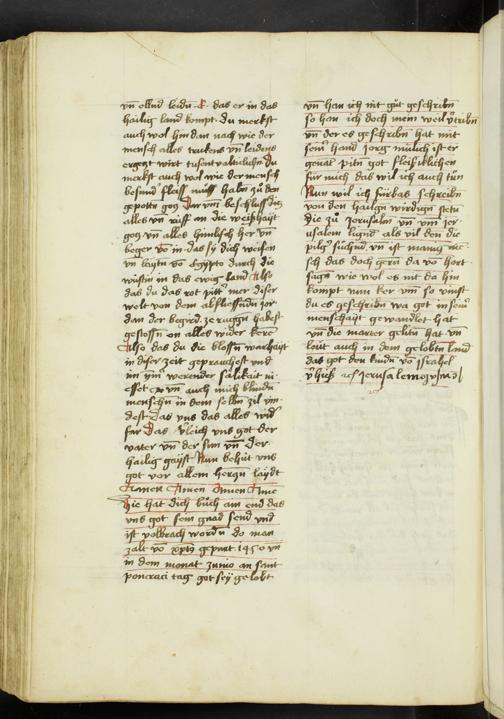 vn̄ ellnd leidn E das er in das
hailig land kompt. du merkst
auch wol hin dan nach wie der
mensch alles trukens vn̄ leidens
ergetzt wirt tusentualticlichn̄ Du
merkst auch wol wie der mensch
besund fleiss muss habn̄ zů den
gepotn̄ gotz
alles vn̄ riiff an die weishayt
gotz vn̄ alles himlisch her vn̄
beger dē in das sÿ dich weisen
vn̄ laytn̄ vō Egÿpto durch die
wüstin in das ewig land Also
das du das rot mer diser
welt von dem abfliessendn̄ jor
dan der begird ze ruggn̄ habest
gestossn̄ on alles wider kerē
Also das du die blossn̄ warhayt
in diser zeit geprauchest vnd
in ÿm̄ werender sälikait ni
essest vn̄ auch mich blindn̄
menschn̄ in dem selbn̄ zil vin
dest Das vns das alles wid
far Das v̉leich vns got der
vater vn̄ der sun vn̄ der
hailig gaÿst Nun behüt vns
got vor allem herczn̄ laydt
Amen Amen Amen Ame
hie hat dich bůch am end das
vns got sein gnad send vnd
ist volbracht wordn̄ do man
zalt vō xp̄ti gepurt 1450 vn̄
in dem monat Junio an sant
poncraci tag got seÿ gelobt
vn̄ han ich nit gůt geschribn̄
so hon ich doch mein weil v̉tribn̄
vn̄ der es geschribn̄ hat mit
seinr hand Jorg mülich ist er
genāt pitn̄ got fleissiklichen
für mich das wil ich auch tůn
Nun wil ich fürbas schreibn̄
von den hailgn̄ wirdign̄ stetn̄
die zů Jerusalem vn̄ vm̄ Jer
usalem ligend als vil den die
pilgr̄ sůchnd vn̄ ist manig mē
sch das doch gern̄ da vō hort
sagn̄ wie wol es nit da hin
kompt nun ker vm̄ so vinst
du es geschribn̄ wa got in seinr
menschayt gewandlet hat
vn̄ die marter gelitn̄ hat vn̄
leitt auch in dem gelobtn̄ land
das got den kindn̄ vō israhel
v̉hiess